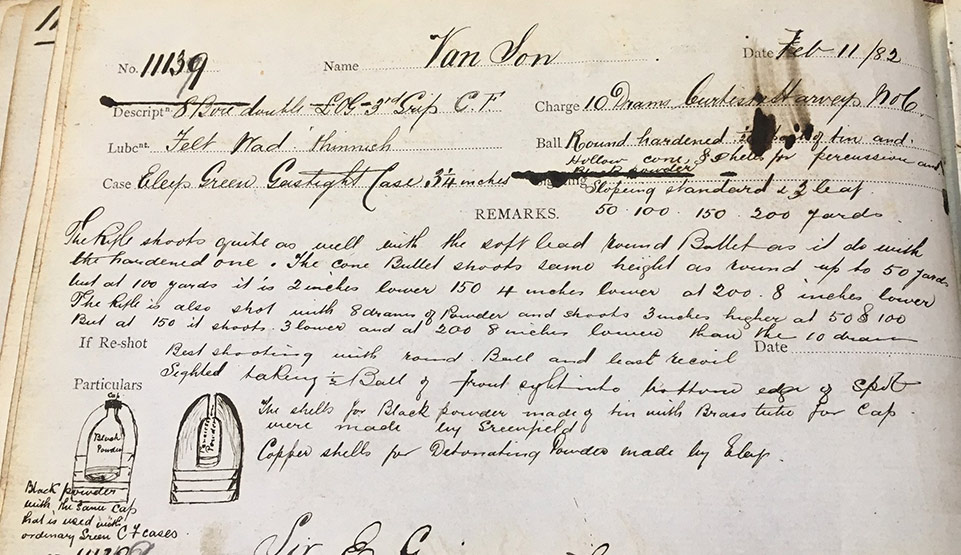 No. 11139 Name Van Son Date Feb 11/82
Descriptn. 8 Bore double LOG 3rd Grip C.F Charge 10 Drams Curtis & Harveys No 6
Lubcnt. Felt Wad thinnish Ball Round hardened of tin and
Hollow cone, & shells for percussion and
Case Eleys Green Gastight Case 3¼ inches Black powder
Sloping standard & 3 leaf
REMARKS. 50 . 100 . 150 . 200 yards
The Rifle shoots quite as well with the soft lead round Bullet as it do with
the hardened one. The cone Bullet shoots same height as round up to 50 yards
but at 100 yards it is 2 inches lower 150 4 inches lower at 200 . 8 inches lower
The Rifle is also shot with 8 drams of Powder and shoots 3 inches higher at 50 & 100
But at 150 it shoots 3 lower and at 200 8 inches lower than the 10 drams
If Re-shot Date
Best shooting with round Ball and least recoil
Sighted taking ½ Ball of front sight into bottom edge of spot
Particulars
The shells for Black powder made of tin with Brass tube for Cap
were made by Greenfield
Copper shells for Detonating Powder made by Eley.
Cap
Black
Powder
Powder
Black powder
with the same cap
that is used with
ordinary Green C F cases
11139
Sir E G